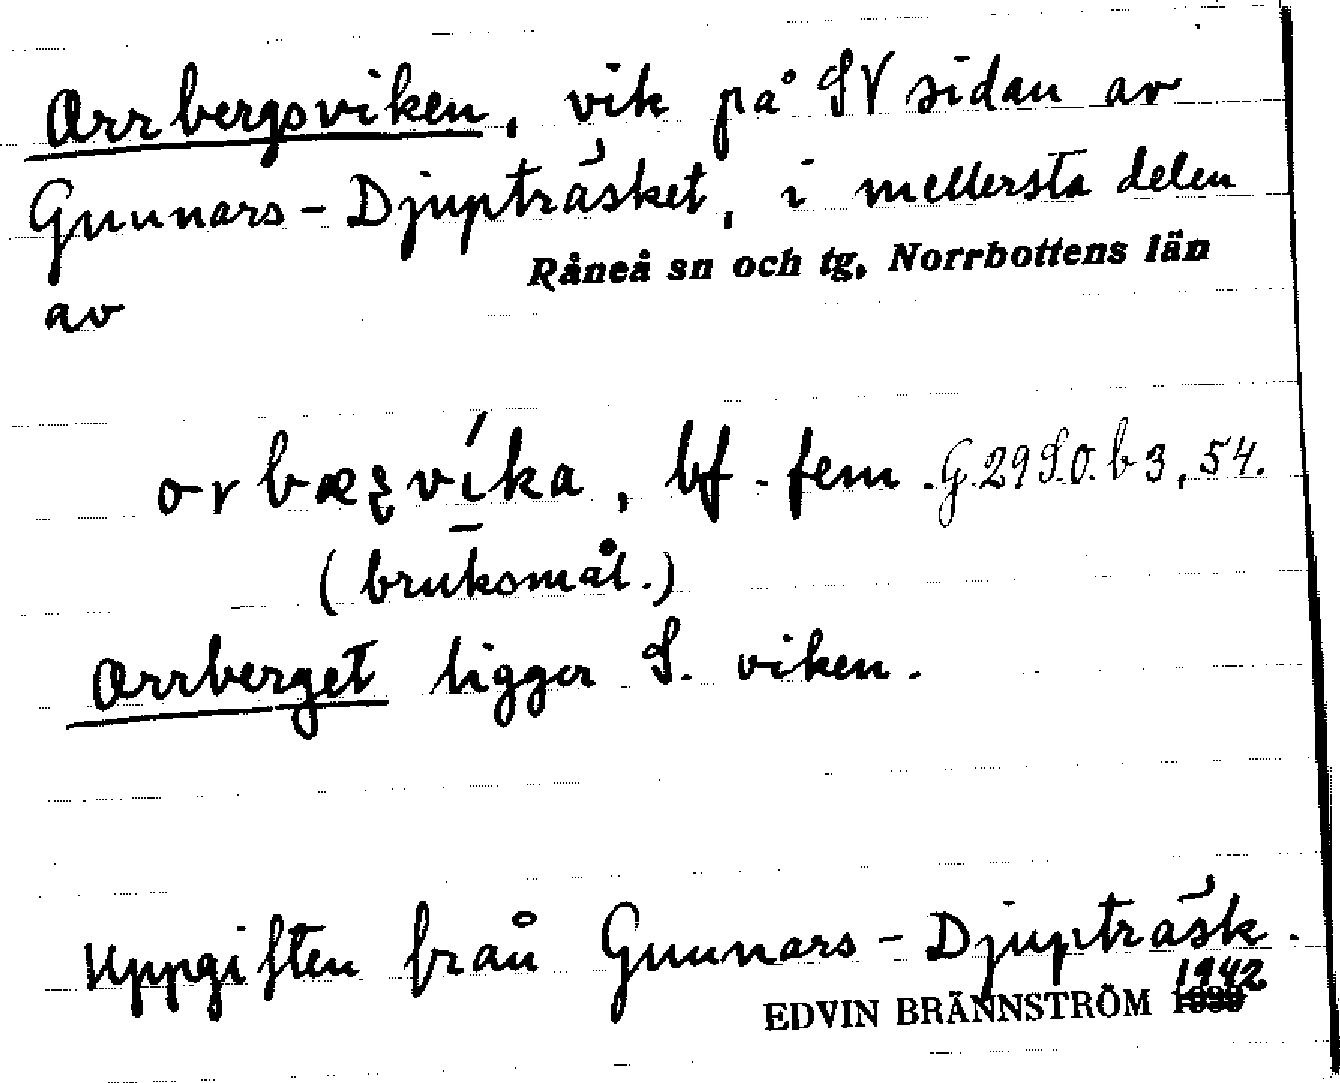 Orrbergsviken, vik på SV sidan av
Gunnars-Djupträsket, i mellersta delen
Råneå sn och tg, Norrbottens län
av
orbæʒvika, bf. fem. G.29S.O. b 3, 54.
(bruksmål.)
Orrberget ligger S. viken.
Uppgiften från Gunnars-Djupträsk.
1942
EDVIN BRÄNNSTRÖM